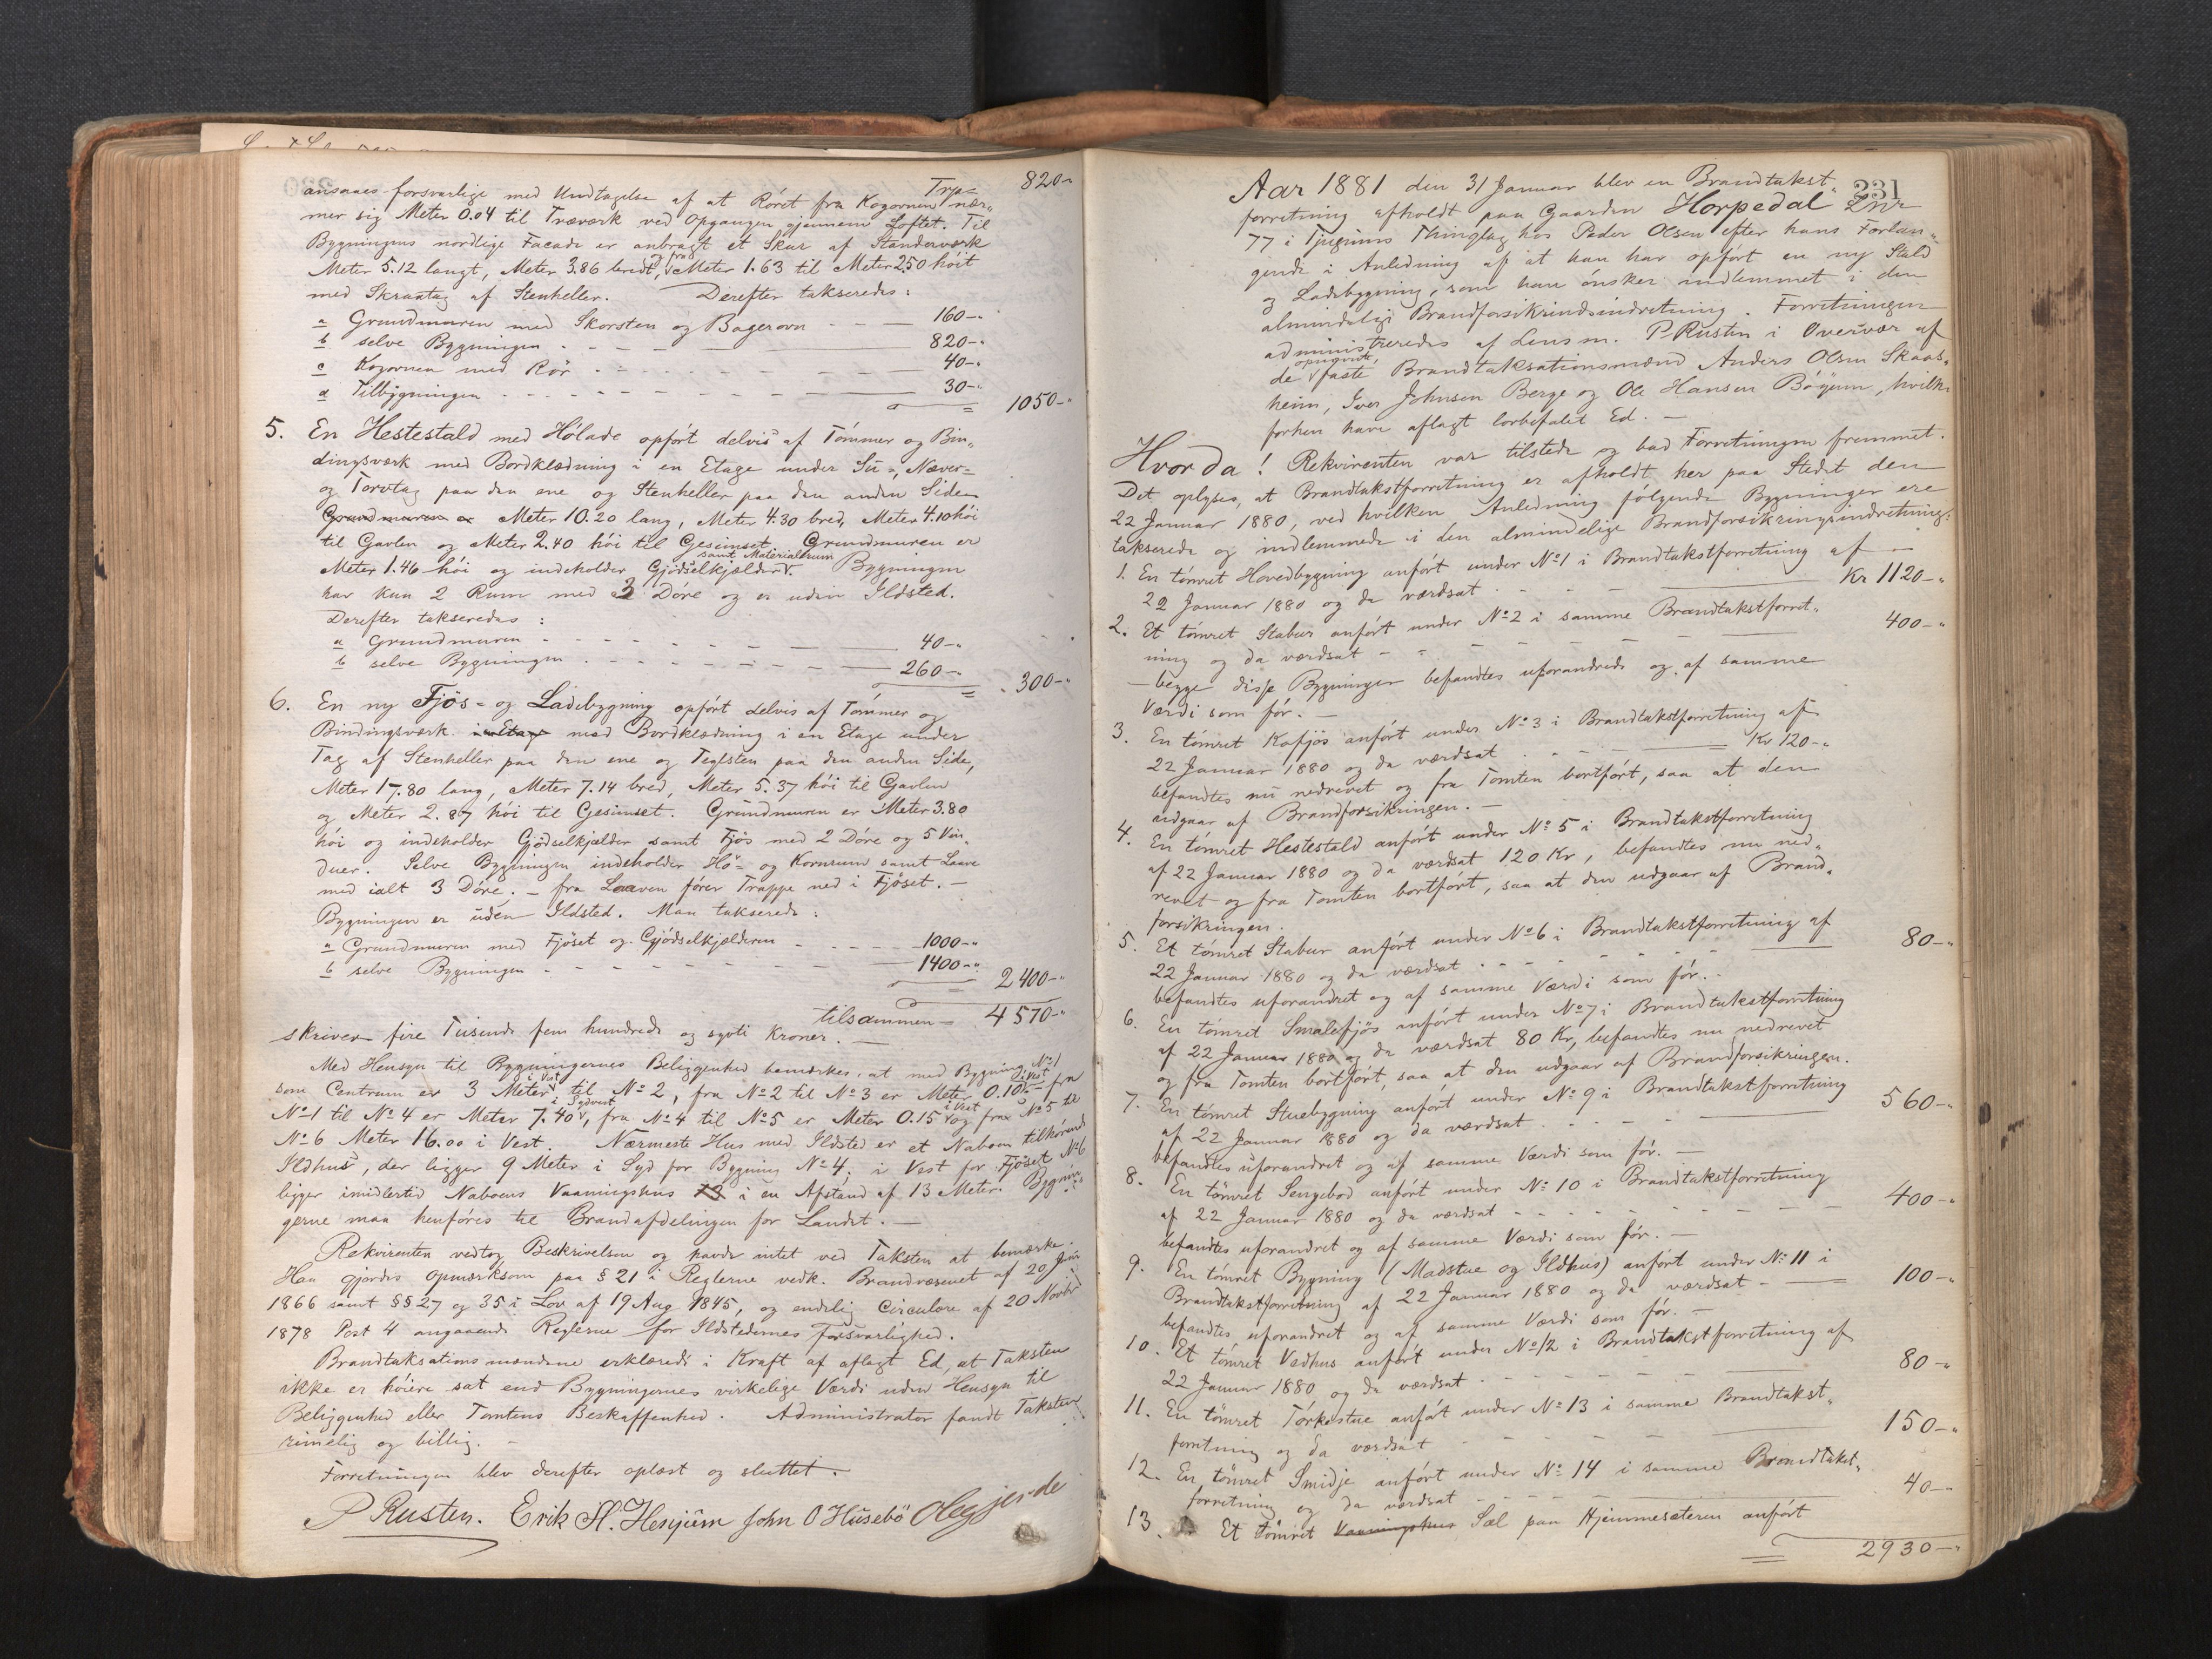 Trp= 820-"
ansaaes forsvarlige med Undtagelse af at Röret fra Kogovnen nær„
mer sig Meter 0.04 til Træværk ved Opgangen gjennem Loftet. Til
Bygningens nordlige Facade er anbragt et Skur af Standerværk
Meter 5.12 langt, Meter 3.86 bredt, og fra Meter 1.63 til Meter 2.50 höit
med Skraatag af Stenheller. Derefter takseredes:
a Grundmuren med Skorsten og Bagerovn - - 160-"
b selve Bygningen - - - 820-"
c Kogovnen med Rör - - - 40-"
d Tilbygningen - - - 30-"
= 1050-"
5. En Hestestald med Hölade opfört delvis af Tömmer og Bin„
dingsværk med Bordklædning i en Etage under Su=, Næver=
og Torvtag paa den ene og Stenheller paa den anden Side
Grundmuren er Meter 10.20 lang, Meter 4.30 bred, Meter 4.10 höi
til Gavlen og Meter 2.40 höi til Gesimset. Grundmuren er
Meter 1.46 höi og indeholder Gjödselkjælder samt Materialrum. Bygningen
har kun 2 Rum med 3 Döre og er uden Ildsted.
Derefter takseredes:
a Grundmuren - - - 40-"
b selve Bygningen - - - 260-"
= 300-"
6. En ny Fjös- og Ladebygning opfört delvis af Tömmer og
Bindingsværk i en Etage med Bordklædning i en Etage under
Tag af Stenheller paa den ene og Teglsten paa den anden Side,
Meter 17.80 lang, Meter 7.14 bred, Meter 5.37 höi til Gavlen
og Meter 2.87 höi til Gesimset. Grundmuren er Meter 3.80
höi og indeholder Gjödselkjælder samt Fjös med 2 Döre og 5 Vin„
duer. Selve Bygningen indeholder Hö- og Kornrum samt Laave
med ialt 3 Döre. – fra Laaven förer Trappe ned i Fjöset. –
Bygningen er uden Ildsted. Man takserede:
a Grundmuren med Fjöset og Gjödselkjælderen - - - 1000-"
b selve Bygningen - - - 1400-"
= 2400-"
tilsammen = 4570-"
skriver fire Tusende fem hundrede og sytti Kroner. –
Med Hensyn til Bygningernes Beliggenhed bemærkes, at med Bygning No 1
som Centrum er 3 Meter i Vest til No 2, fra No 2 til No 3 er Meter 0.10 i Vest fra
No 1 til No 4 er Meter 7.40 i Sydvest, fra No 4 til No 5 er Meter 0.15 i Vest og fra No 5 til
No 6 Meter 16.00 i Vest. Nærmeste Hus med Ildsted er et Naboen tilhörende
Ildhus, der ligger 9 Meter i Syd for Bygning No 4; i Vest for Fjöset No 6
ligger imidlertid Naboens Vaaningshus 13 i en Afstand af 13 Meter. Bygnin„
gerne maa henföres til Brandafdelingen for Landet. –
Rekvirenten vedtog Beskrivelsen og havde intet ved Taksten at bemærke.
Han gjordes opmærksom paa § 21 i Reglerne vedk. Brandvæsenet af 20 Juni
1866 samt §§ 27 og 35 i Lov af 19 Aug 1845, og endelig Circulære af 20 Novbr
1878 Post 4 angaaende Reglerne for Ildstedernes Forsvarlighed.
Brandtaksationsmændene erklærede i Kraft af aflagt Ed, at Taksten
ikke er höiere sat end Bygningernes virkelige Værdi uden Hensyn til
Beliggenhed eller Tomtens Beskaffenhed. Administrator fandt Taksten
rimelig og billig. –
Forretningen blev derefter oplæst og sluttet.
P Rusten. Erik H. Henjum John O Husebö
231
Aar 1881 den 31 Januar blev en Brandtakst„
forretning afholdt paa Gaarden Horpedal Lnr
77 i Tjugums Thinglag hos Peder Olsen efter hans Forlan„
gende i Anledning af at han har opfört en ny Stald
og Ladebygning, som han önsker indlemmet i den
almindelige Brandforsikrindsindretning. Forretningen
administreredes af Lensm. P Rusten i Overvær af
de opnævnte, faste Brandtaksationsmænd Anders Olsen Skaas„
heim, Iver Johnsen Berge og Ole Hansen Böyum, hvilke
forhen have aflagt lovbefalet Ed. –
Hvorda! Rekvirenten var tilstede og bad Forretningen fremmet.
Det oplyses, at Brandtakstforretning er afholdt her paa Stedet den
22 Januar 1880, ved hvilken Anledning fölgende Bygninger ere
takserede og indlemmede i den almindelige Brandforsikringsindretning:
1. En tömret Hovedbygning anfört under No 1 i Brandtakstforretning af
22 Januar 1880 og da værdsat - - - Kr 1120-"
2. Et tömret Stabur anfört under No 2 i samme Brandtakstforret„
ning og da værdsat - - - 400-"
– begge disse Bygninger befandtes uforandrede og af samme
Værdi som för. –
3. En tömret Kofjös anfört under No 3 i Brandtakstforretning af
22 Januar 1880 og da værdsat - - - Kr 120-"
befandtes nu nedrevet og fra Tomten bortfört, saa at den
udgaar af Brandforsikringen. –
4. En tömret Hestestald anfört under No 5 i Brandtakstforretning
af 22 Januar 1880 og da værdsat 120 Kr, befandtes nu ned„
revet og fra Tomten bortfört, saa at den udgaar af Brand„
forsikringen.
5. Et tömret Stabur anfört under No 6 i Brandtakstforretning af
22 Januar 1880 og da værdsat - - - 80-"
befandtes uforandret og af samme Værdi som för. –
6. En tömret Smalefjös anfört under No 7 i Brandtakstforretning
af 22 Januar 1880 og da værdsat 80 Kr, befandtes nu nedrevet
og fra Tomten bortfört, saa at den udgaar af Brandforsikringen.
7. En tömret Stuebygning anfört under No 9 i Brandtakstforretning
af 22 Januar 1880 og da værdsat - - - 560-"
befandtes uforandret og af samme Værdi som för. –
8. En tömret Sengebod anfört under No 10 i Brandtakstforretning
af 22 Januar 1880 og da værdsat - - - 400-"
befandtes uforandret og af samme Værdi som för. –
9. En tömret Bygning (Madstue og Ildhus) anfört under No 11 i
Brandtakstforretning af 22 Januar 1880 og da værdsat - - 100-"
befandtes uforandret og af samme Værdi som för. –
10. Et tömret Vedhus anfört under No 12 i Brandtakstforretning af
22 Januar 1880 og da værdsat - - - 80-"
11. En tömret Törkestue anfört under No 13 i samme Brandtakst„
forretning og da værdsat - - - 150-"
12. En tömret Smidje anfört under No 14 i samme Brandtakst„
forretning og da værdsat - - - 40-"
13. Et tömret Vaaningshus Sæl paa Hjemmesæteren anfört
= 2930-"